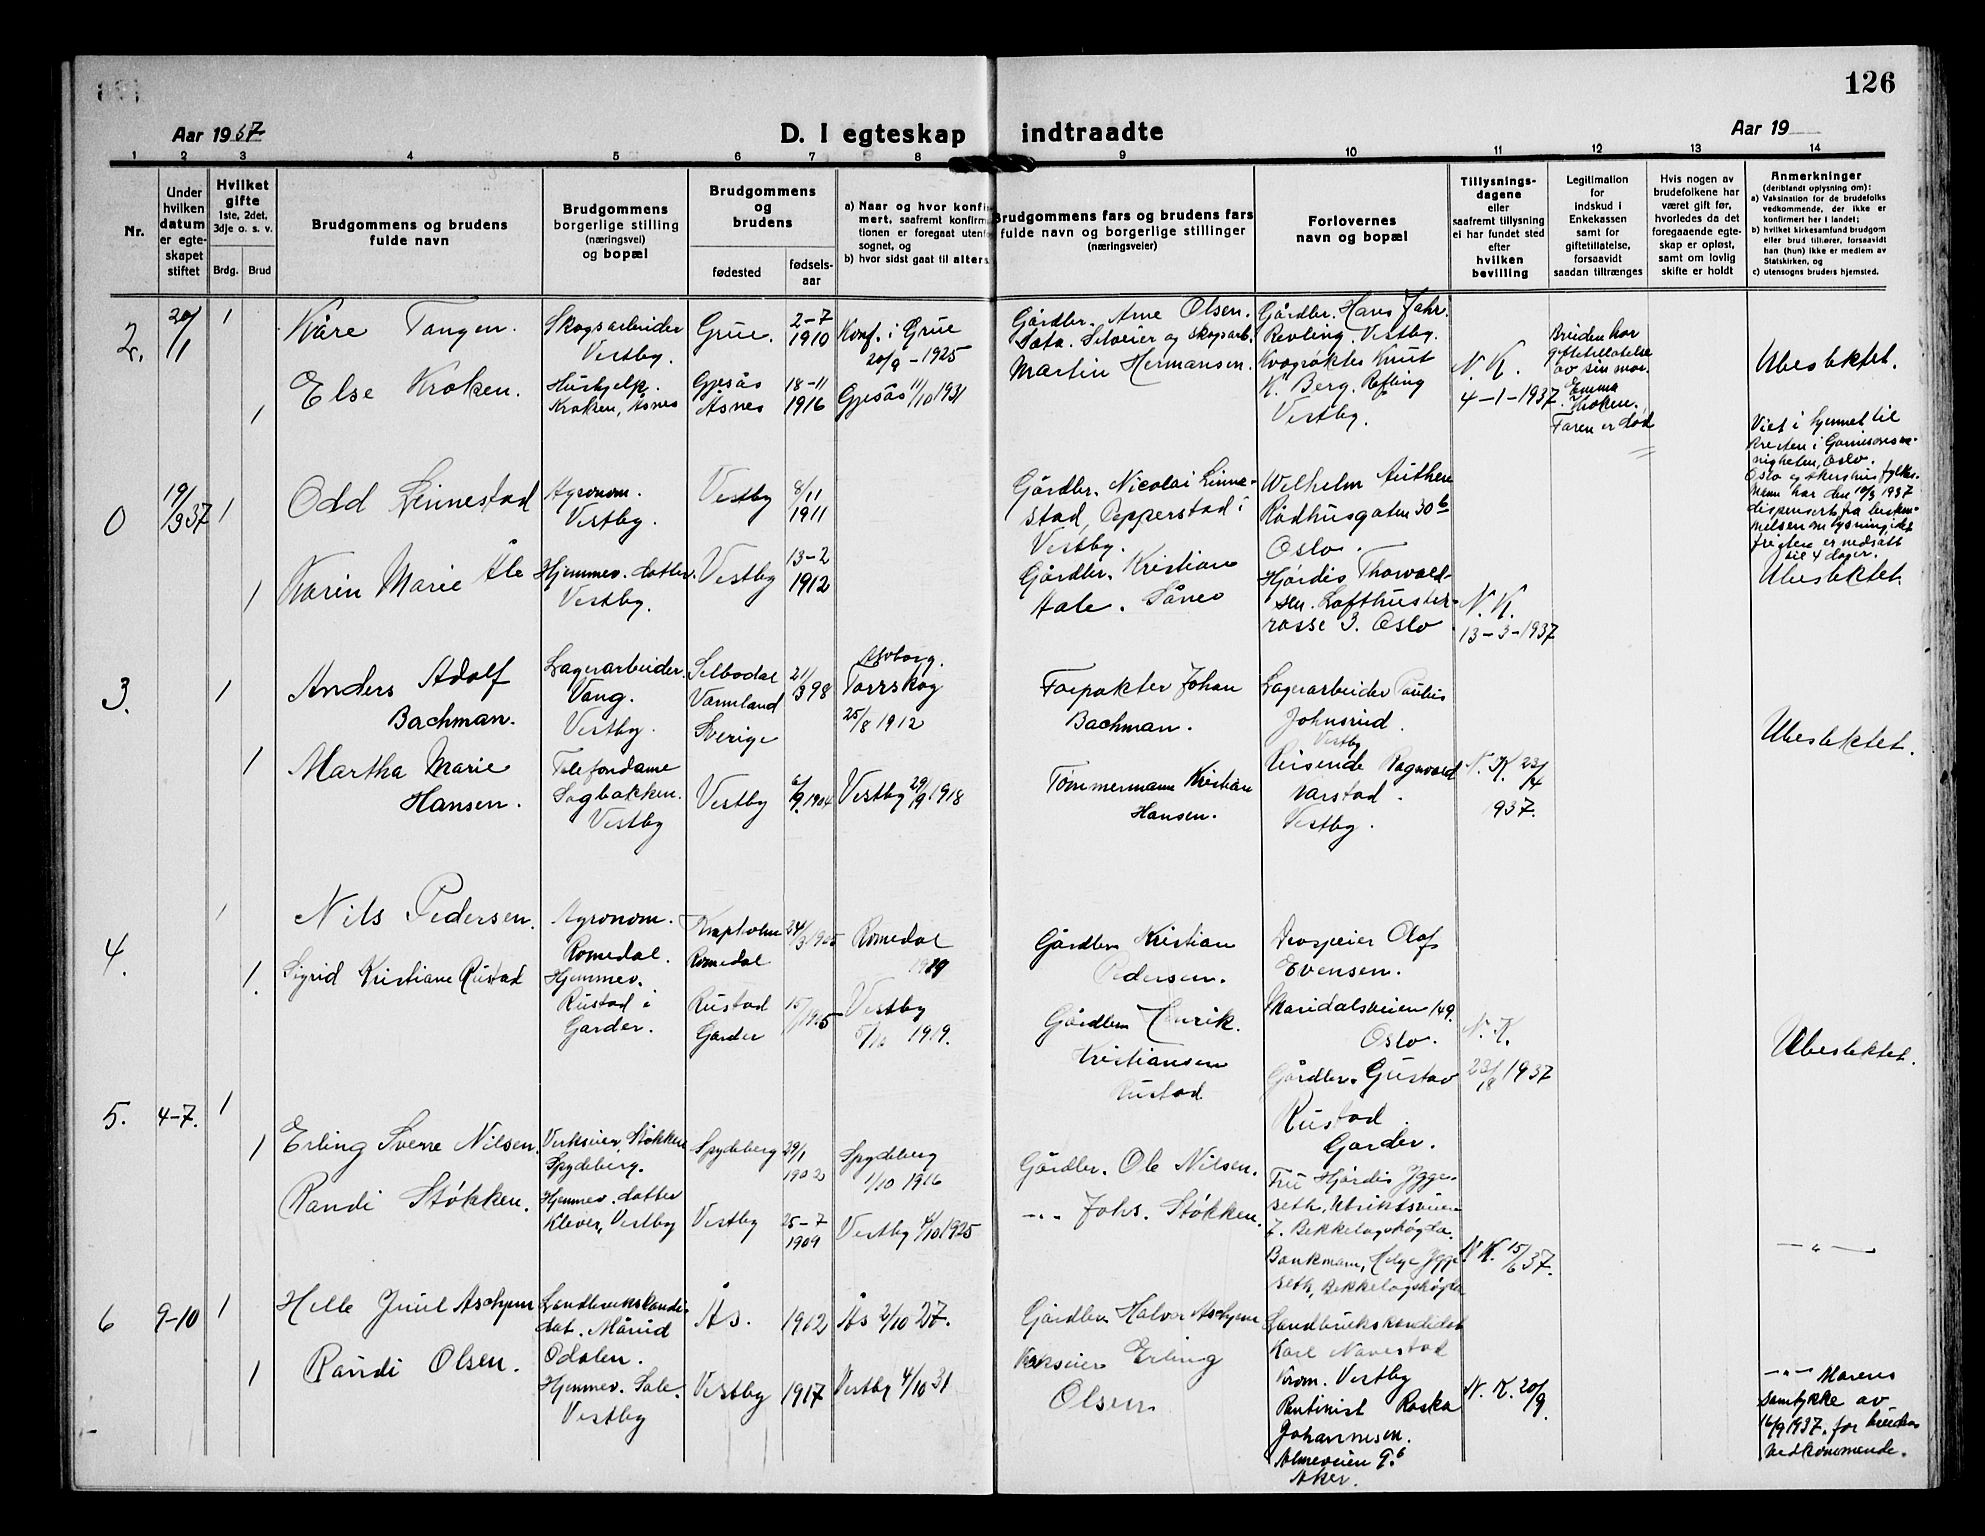 126
Aar 1937
D. I egteskap indtraadte
Aar 19
1 2 3 4 5 6 7 8 9 10 11 12 13 14
Nr.
Under
hvilken
datum
er egte-
skapet
stiftet
Hvilket
gifte
1ste, 2det,
3dje o. s. v.
Brdg. Brud
Brudgommens og brudens
fulde navn
Brudgommens
borgerlige stilling
(næringsvei)
og bopæl
Brudgommens
og
brudens
fødested
fødsels-
aar
a) Naar og hvor konfir
mert, saafremt konfirm
tionen er foregaat uten
sognet, og
b) hvor sidst gaat til alters
Brudgommens fars og brudens fars
fulde navn og borgerlige stillinger
(næringsveier)
Forlovernes
navn og bopæl
Tillysnings-
dagene
eller
saafremt tillysning
ei har fundet sted
efter
hvilken
bevilling
Legitimation
for
indskud i
Enkekassen
samt for
giftetillatelse,
forsaavidt
saadan tiltrænges
Hvis nogen av
brudefolkene har
været gift før,
hvorledes da det
foregaaende egte-
skap er opløst,
samt om lovlig
skifte er holdt
Anmerkninger
(deriblandt oplysning om):
a) Vaksination for de brudefolks
vedkommende, der ikke er
konfirmert her i landet;
b) hvilket kirkesamfund brudgom
eller brud tilhører, forsaavidt
han (hun) ikke er medlem av
Statskirken, og
c) utensogns bruders hjemsted.
2.
20/1
1
Kåre Tangen.
Skogsarbeider
Vestby.
Grue.
2-7
1910
Konf. i Grue
20/9 - 1925
Gårdbr. Arne Olsen.
Gårdbr. Hans Jahr.
Revling. Vestby.
1
Else Kroken.
Hushjelp.
Kroken, Åsnes
Gjesås
Åsnes
18-11
1916
Gjesås 11/10 1931
Sata. Selveier og skogsarb.
Martin Hermansen.
Kvegrøkter Knut
K. Berg. Refling
Vestby.
N. K.
4-1-1937
Bruden har
giftetillatelse
av sin mor.
Emma
Kroken.
Faren er død
Ubeslektet.
0
19/3 37
1
Odd Linnestad
Agronom.
Vestby.
Vestby
8/11
1911
Gårdbr. Nicolai Linne-
stad, Pepperstad i
Vestby.
Wilhelm Authen
Rådhusgaten 30b
Oslo.
Viet i hjemmet til
presten i Garnisonsme-
nigheten, Oslo.
Oslo og Akershus fylkes-
menn har den 10/3 1937
dispensert fra bestem-
melsen om lysning idet
fristen er nedsatt
til 4 dager.
Ubeslektet.
1
Karin Marie Åle
Hjemmev. datter.
Vestby.
Vestby
13-2
1912
Gårdbr. Kristian
Aale. Såner
Hjørdis Thorvald-
sen. Lofthuster-
rasse 3. Oslo
N. K.
13-3-1937
3.
1
Anders Adolf
Bachman.
Lagerarbeider.
Vang.
Vestby.
Selbodal
Varmland
Sverige
21/3 98
Torrskog
25/8 1912
Forpakter Johan
Bachman.
Lagerarbeider Paulus
Johnsrud.
Vestby
Ubeslektet.
1
Martha Marie
Hansen.
Telefondame
Sagbakken.
Vestby
Vestby
6/9.1904
Vestby 29/9 1918
Tømmermann Kristian
Hansen.
Reisende Ragnvald
Varstad.
Vestby.
N. K. 23/4
937.
4.
1
Nils Pedersen.
Agronom.
Romedal.
Romedal
24/3 1905
Romedal
1919
Gårdbr. Kristian
Pedersen.
Olaf
Evensen.
Maridalsveien 149.
Oslo.
1.
Sigrid Kristiane Rustad
Hjemmev.
Rustad i
Garder.
Rustad
Garder
Vestby
1919.
Gårdbr. Henrik.
Kristiansen
Rustad
Gårdbr. Gustav
Rustad
Garder.
N. K.
1937
Ubeslektet.
5.
4-7.
1
Erling Sverre Nilsen.
Verkseier, Støkken
Spydeberg.
Spydeberg
29/1
1902
Spydeberg
1/10 1916
Gårdbr. Ole Nilsen.
Fru Hjørdis Ygge-
seth, Ulriksveien
7. Bekkelagshøgda.
1
Randi Støkken.
Hjemmev. datter
Klever, Vestby
Vestby
25-7
1909
Vestby 4/10 1925
-"- Johs. Støkken.
Bankmann, Helge Ygge-
seth, Bekkelagshøgda
N. K. 15/6 37.
-"-
6
9-10
1
Helle Juul Aschjem
Landbrukskandi-
dat. Mårud
Odalen.
Ås.
1902
Ås 2/10 27.
Gårdbr. Halvor Aschjem
Landbrukskandidat
Karl Navestad
Krom. Vestby
1
Randi Olsen.
Hjemmev. Sole.
Vestby
Vestby
1917
Vestby 4/10 31
Verkseier Erling
Olsen
Rentenist
Johannesen.
Almeveien 9.b
Aker.
N. K. 20/9.
-"- Morens
samtykke av
16/9 1937. for brudens
vedkommende.